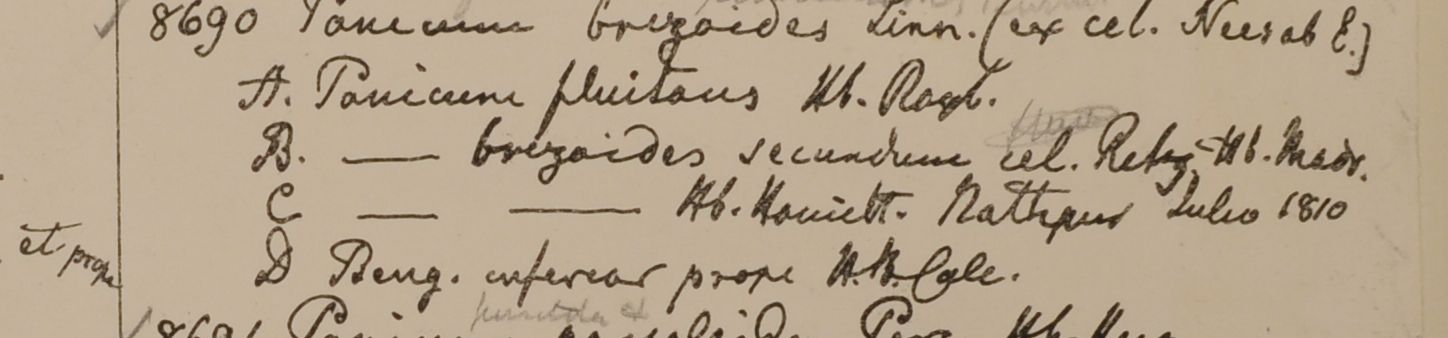 8690 Panicum brizoides Linn. (ex cel. Nees ab E.)
A. Panicum fluitans Hb. Roxb.
B. — brizoides secundum cel. Retz. Hb. Madr.
C — — Hb. Hamilt. Nathpur Julio 1810
et prope
D Beng. inferior prope H.B. Calc.
8691 Panicum Hb.